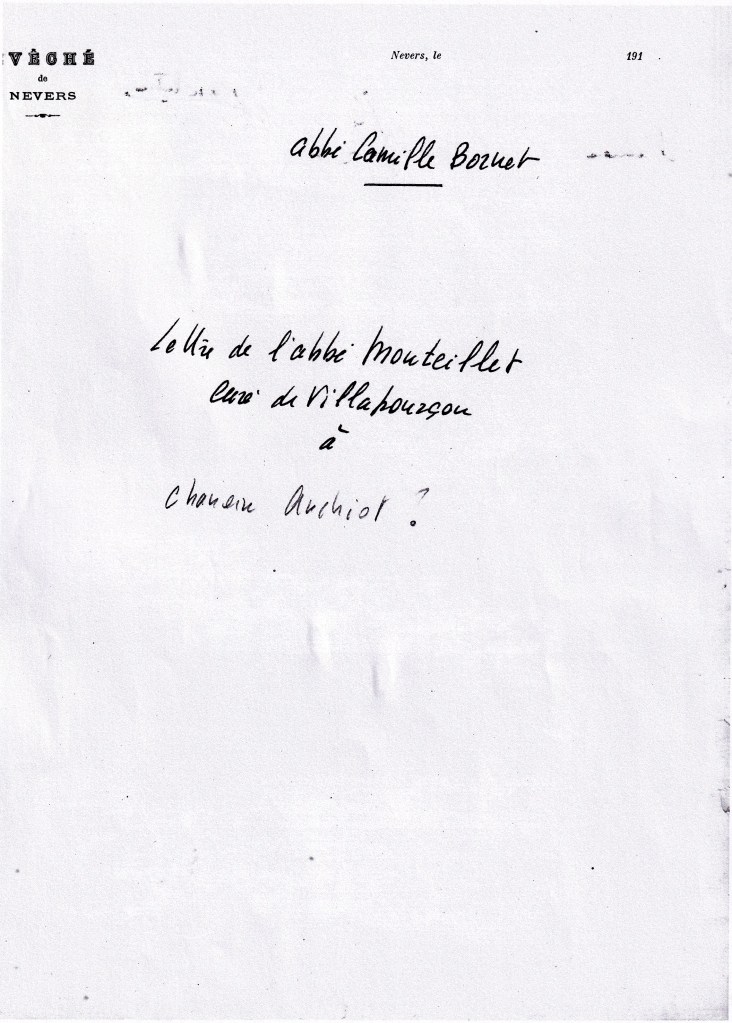 VÊCHÉ
de
NEVERS
Nevers, le 191
abbé Camille Bornet
Lettre de l'abbé Monteillet
curé de Villapourçon
à
chanoine Auchiot ?